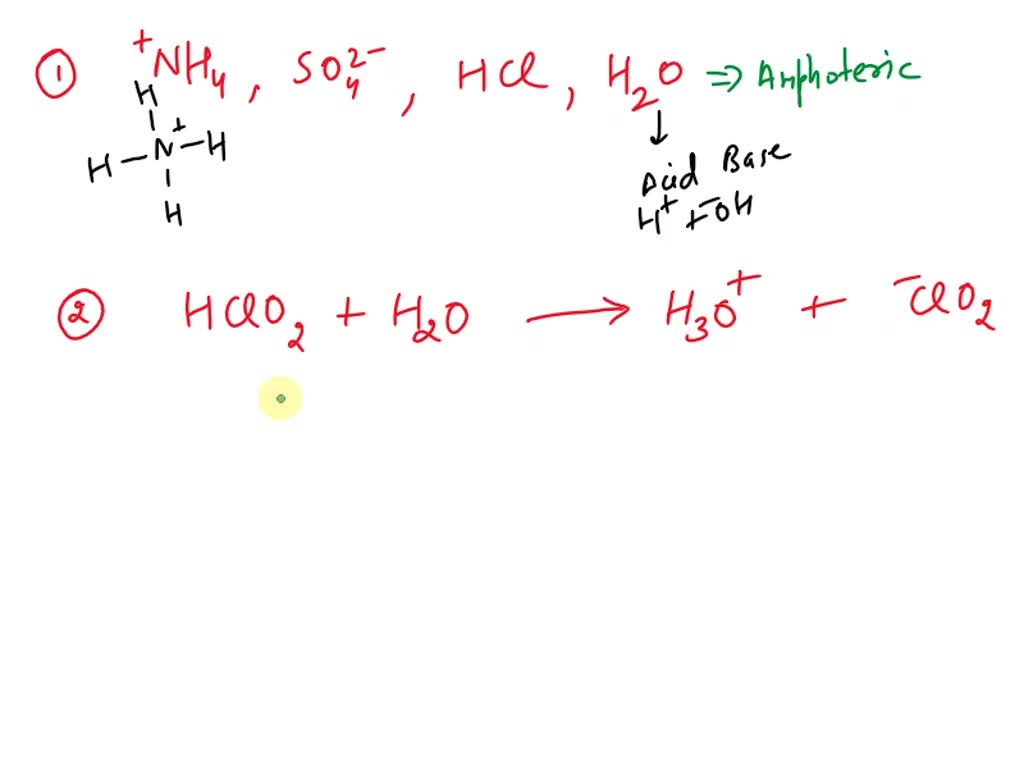 ① ⁺NH₄ , SO₄²⁻ , HCl , H₂O ⇒ Amphoteric
H
H – N⁺ – H
H
↓
Acid Base
H⁺ + ⁻OH
② HClO₂ + H₂O ⟶ H₃O⁺ + ⁻ClO₂